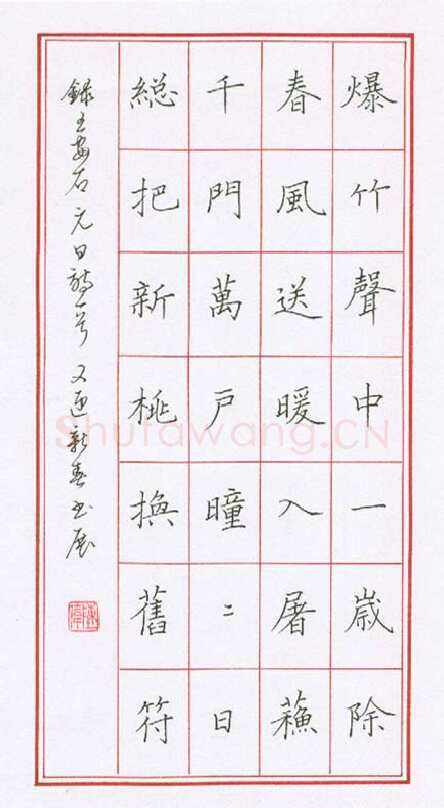 爆竹聲中一歲除
春風送暖入屠蘓
千門萬戶曈〻日
緫把新桃換舊符
録王安石元日詩一首 又迎新春書展
Shufawang.CN